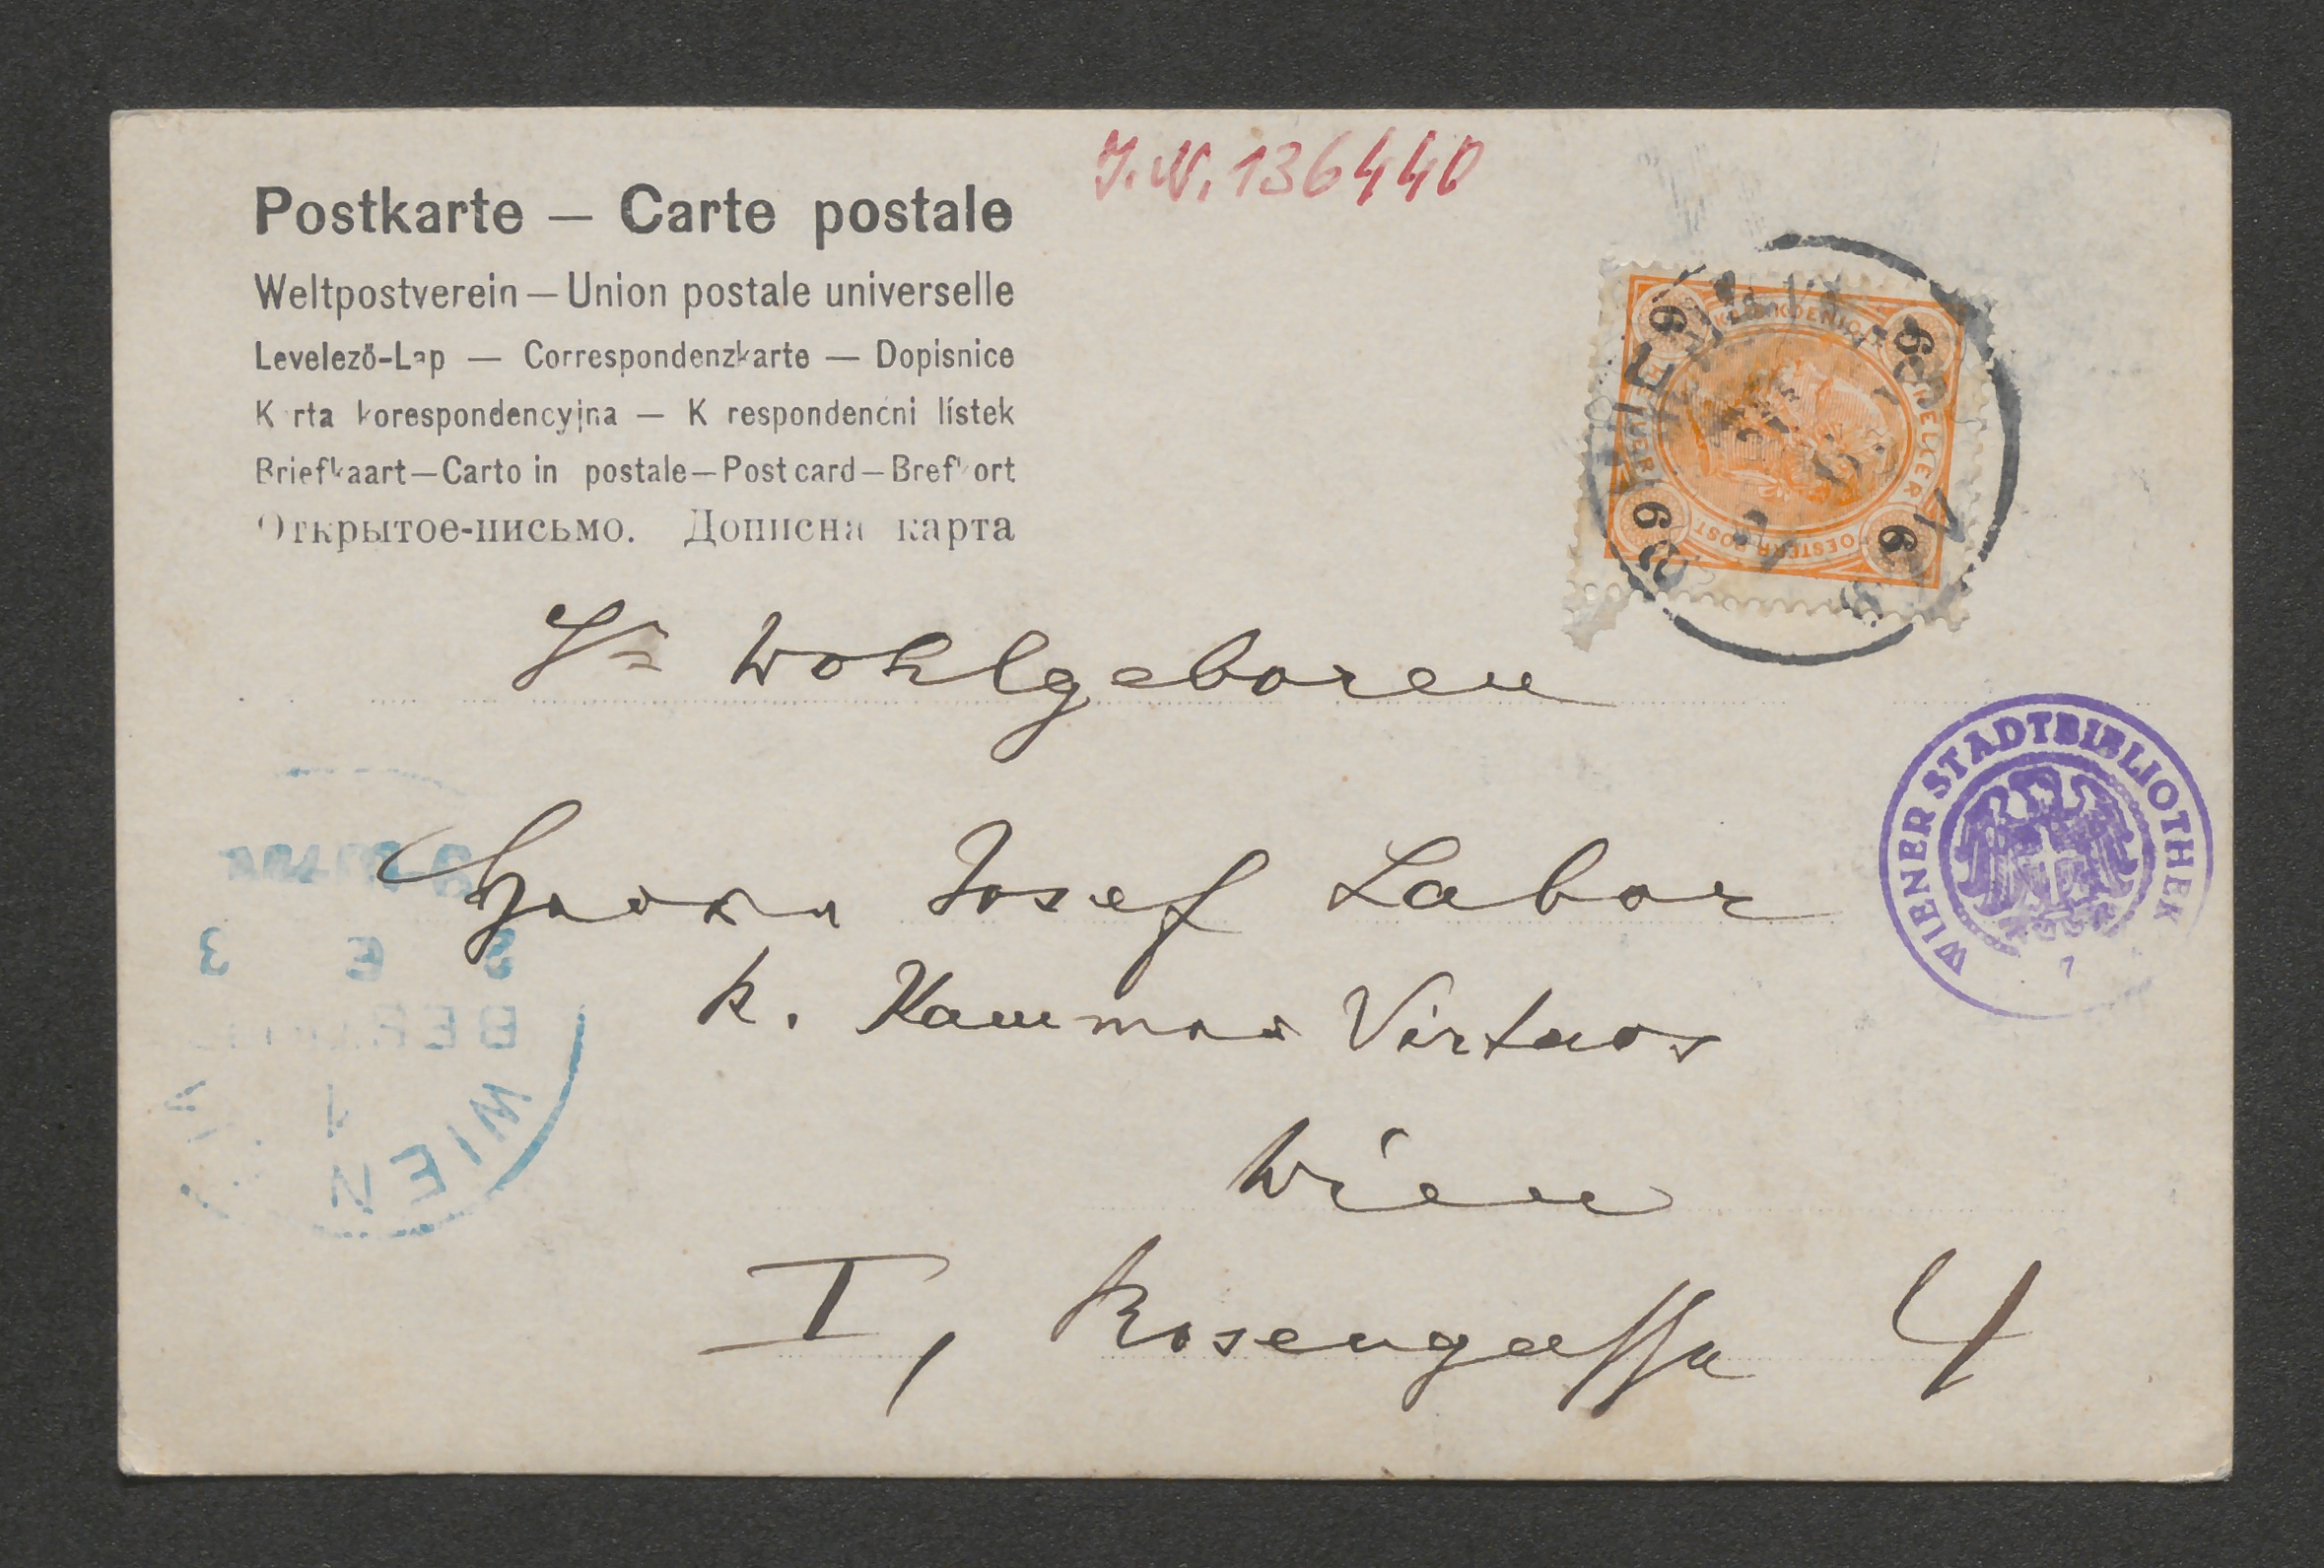 J.N. 136440
Postkarte — Carte postale
Weltpostverein — Union postale universelle
Levelező-Lap — Correspondenzkarte — Dopisnice
K rta korespondencyjna — K respondenční lístek
Briefkaart — Carto in postale — Post card — Brefkort
Открытое-письмо. Дописна карта
6 6
6 6
OESTERR POST
WIEN
Sr Wohlgeboren
WIENER STADTBIBLIOTHEK
Herrn Josef Labor
k. Kammer Virtuos
Wien
I, Rosengasse 4
3 E 3
1
WIEN